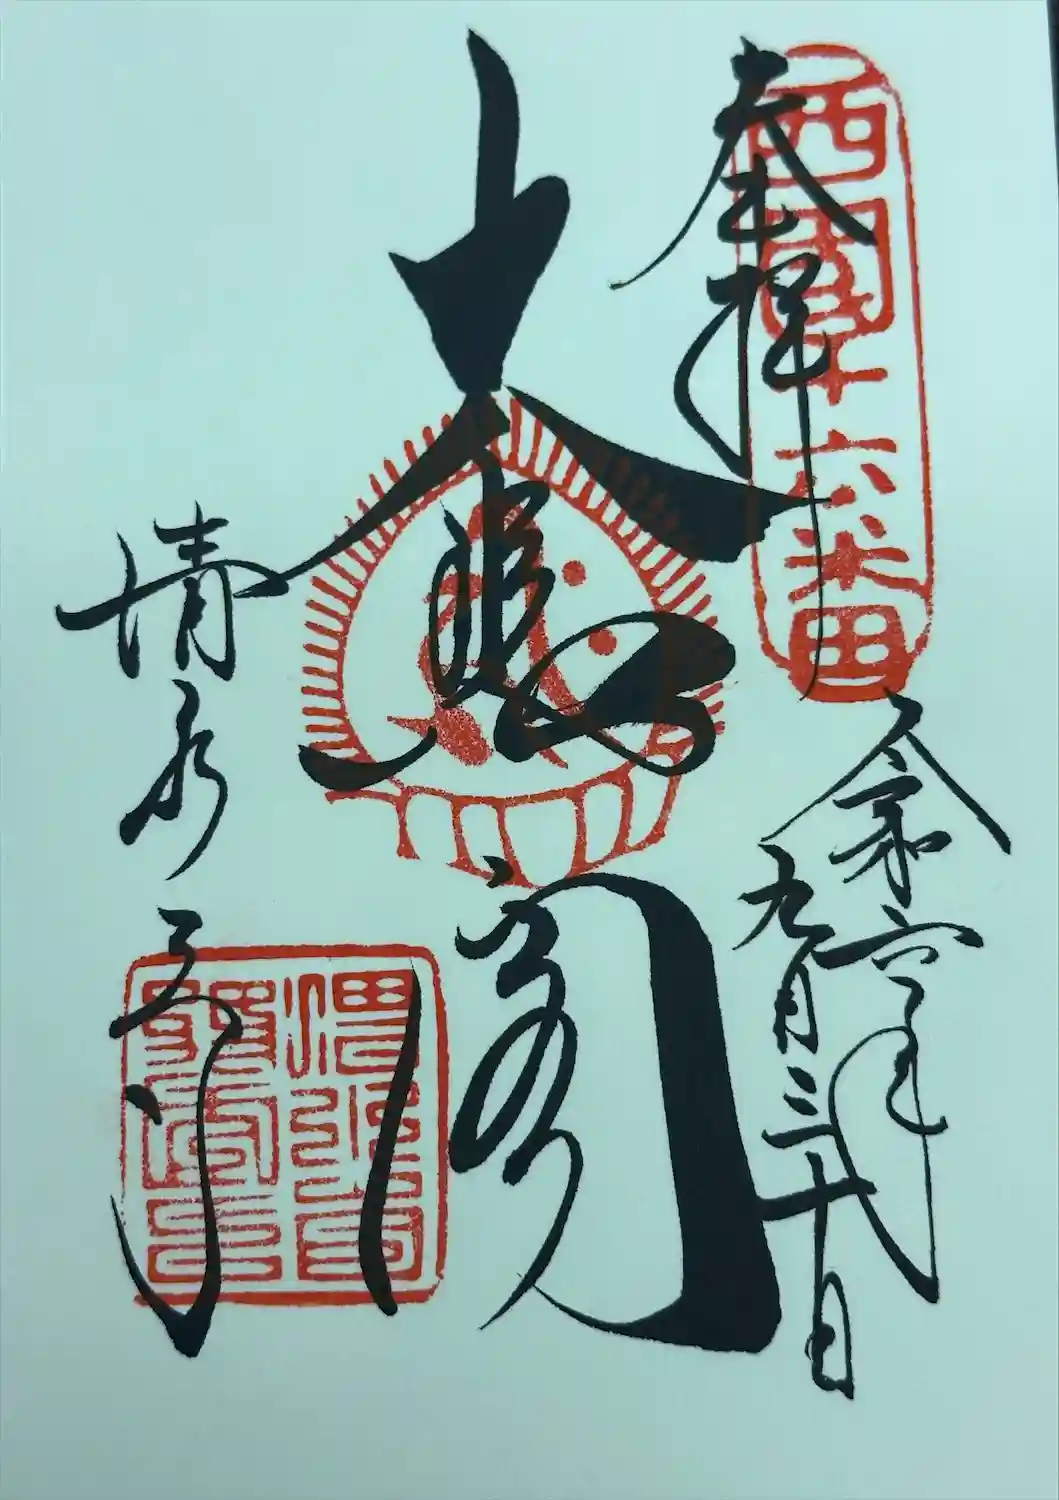 奉拝
西國十六番
令和六年
九月三十日
大悲閣
清水寺